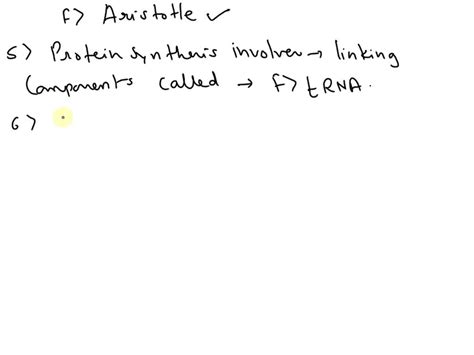 f> Aristotle ✓
5> Protein synthesis involves → linking
Components called → f> tRNA.
6>